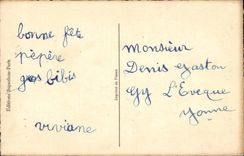 bonne fête
pépère
gros bibis
viviane
Editions Superluxe-Paris
Imprimé en France
monsieur
Denis gaston
Gy L'Eveque
yonne